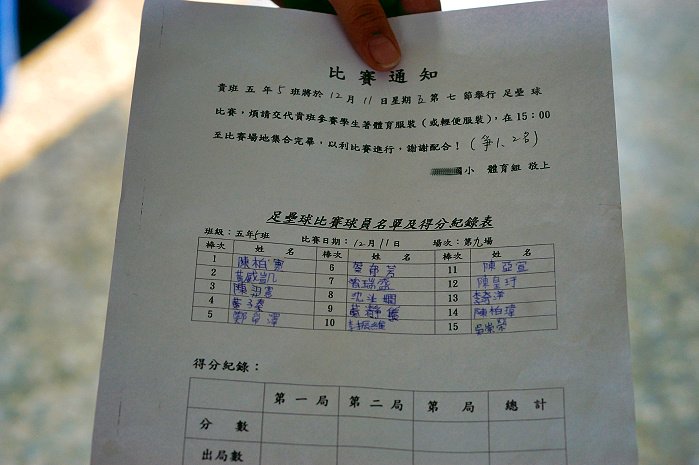 比賽通知
貴班 五 年 5 班將於 12 月 11 日星期 五 第 七 節舉行 足壘 球
比賽，煩請交代貴班參賽學生著體育服裝（或輕便服裝），在 15：00
至比賽場地集合完畢，以利比賽進行，謝謝配合！
國小 體育組 敬上
足壘球比賽球員名單及得分紀錄表
班級：五年5班 比賽日期：12月11日 場次：第九場
棒次 姓 名 棒次 姓 名 棒次 姓 名
1 陳柏憲 6 11 陳亞宣
2 黃威凱 7 曾瑞霖 12 陳星妤
3 陳沼憲 8 沈沚嫻 13
4 9 黃靜優 14 陳柏瑋
5 鄭宗澤 10 李振維 15 吳崇榮
得分紀錄：
第一局 第二局 第 局 總計
分數
出局數